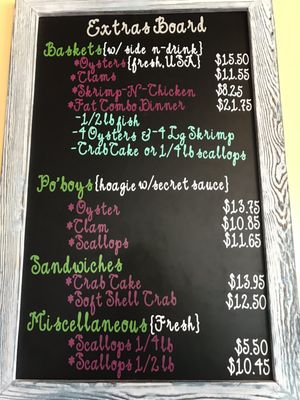 Extras Board
Baskets{w/ side n-drink}
*Oysters{fresh,USA} $15.50
*Clams $11.55
*Skrimp-N-Chicken $8.25
*Fat Combo Dinner $21.75
-1/2lb fish
-4 Oysters &-4 Lg Skrimp
-Crab Cake or 1/4lb scallops
Po'boys{hoagie w/secret sauce}
*Oyster $13.75
*Clam $10.85
*Scallops $11.65
Sandwiches
*Crab Cake $13.95
*Soft Shell Crab $12.50
Miscellaneous{Fresh}
*Scallops 1/4lb $5.50
*Scallops 1/2lb $10.45